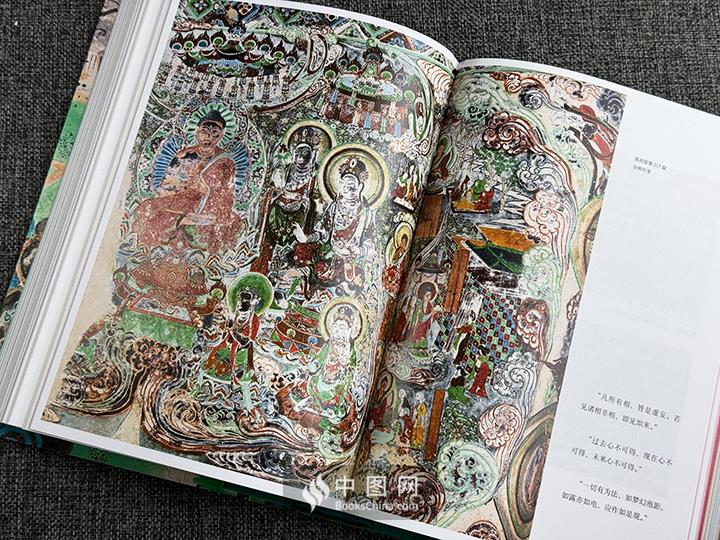 莫高窟第 217 窟
金刚经变
“凡所有相，皆是虚妄。若
见诸相非相，即见如来。”
“过去心不可得，现在心不
可得，未来心不可得。”
“一切有为法，如梦幻泡影，
如露亦如电，应作如是观。”
中图网
BooksChina.com